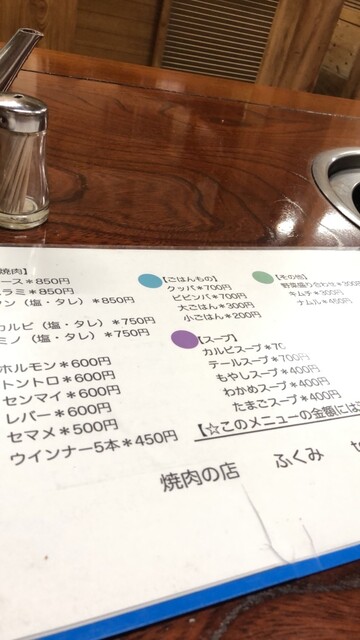 焼肉】
ース*850円
ラミ*850円
ン（塩・タレ）*850円
カルビ（塩・タレ）*750円
ミノ（塩・タレ）*750円
ホルモン*600円
トントロ*600円
センマイ*600円
レバー*600円
セマメ*500円
ウインナー5本*450円
【ごはんもの】
クッパ*700円
ビビンバ*700円
大ごはん*300円
小ごはん*200円
【スープ】
カルビスープ*70
テールスープ*700円
もやしスープ*400円
わかめスープ*400円
たまごスープ*400円
【その他】
野菜盛り合わせ*300
キムチ*300円
ナムル*450円
【☆このメニューの金額には
焼肉の店 ふくみ